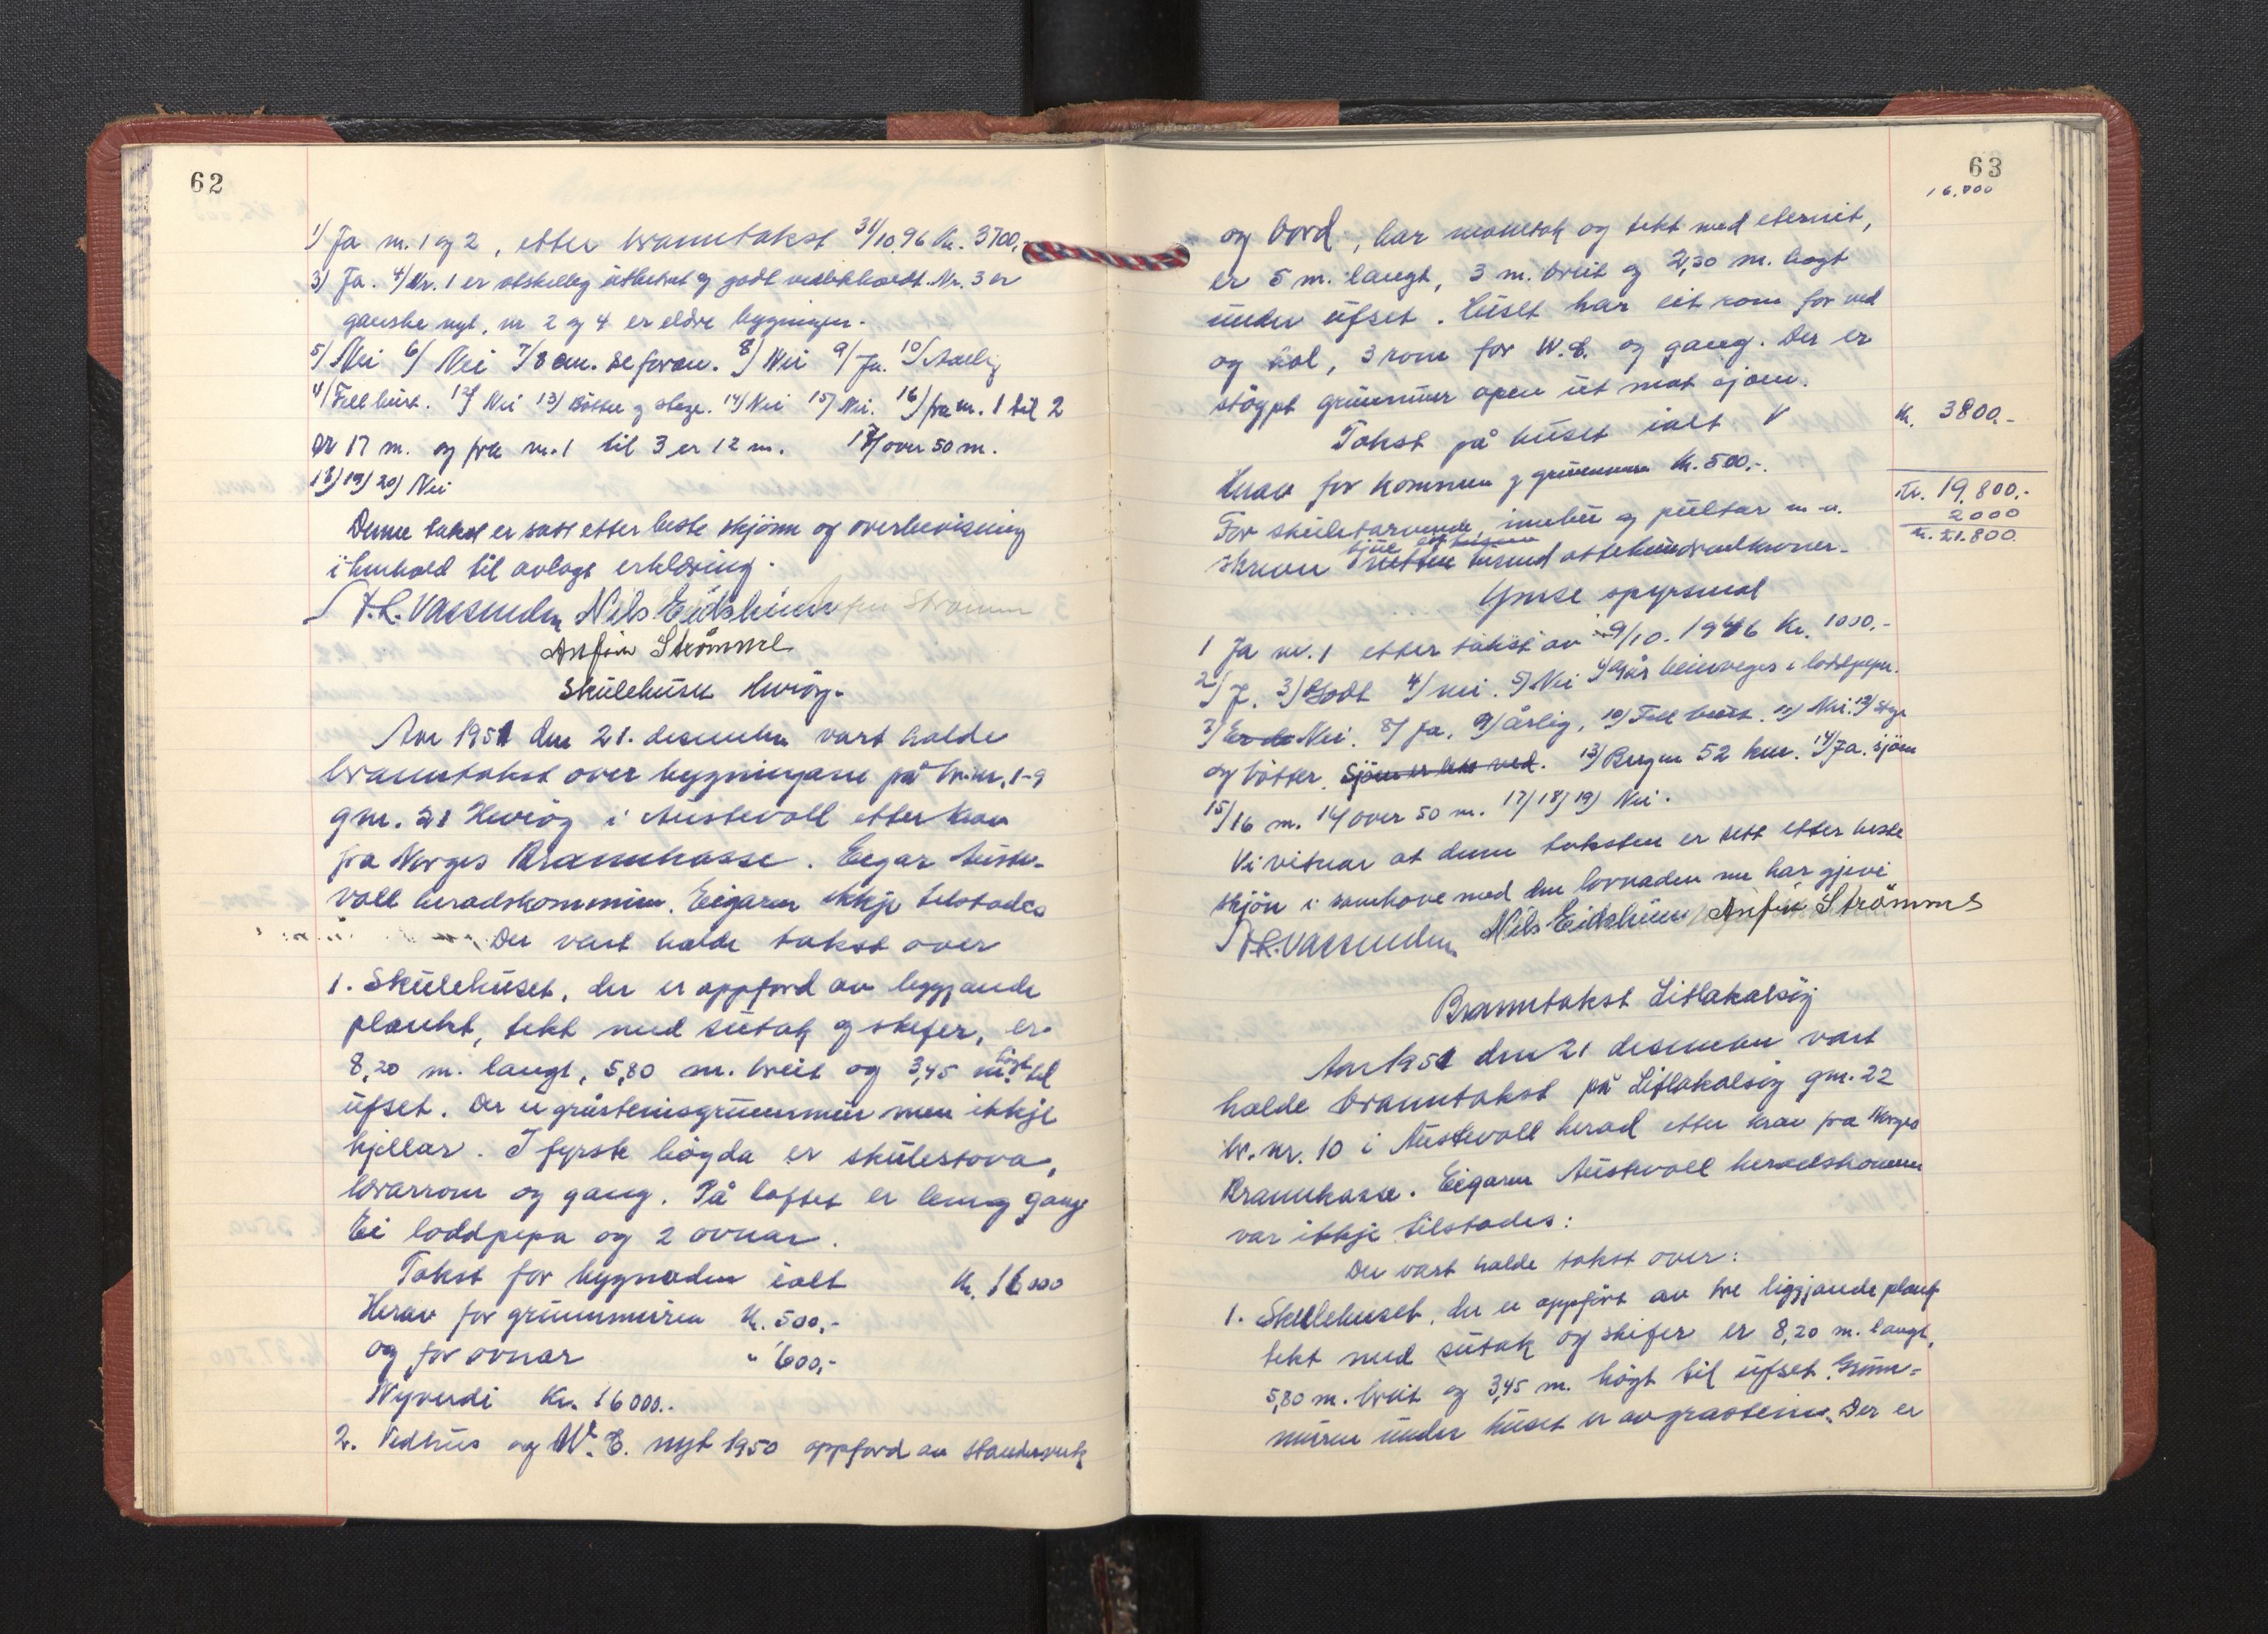 62
1) Ja nr. 1 og 2, etter branntakst 31/10.96 Kr. 3700,-
3) Ja. 4) Nr. 1 er utbetrat og godt vedlikehaldt. Nr. 3 er
ganske nyt, nr 2 og 4 er eldre bygningar.
5) Nei 6) Nei 7) 8 cm. Se foran. 8) Nei 9) Ja. 10) Aarlig
11) Fell brist. 12) Nei 13) Bøtter og stege. 14) Nei 15) Nei. 16) fra nr. 1 til 2
er 17 m. og fra nr. 1 til 3 er 12 m. 17) over 50 m.
18) 19) 20) Nei
Denne takst er satt etter beste skjönn og overbevisning
i henhold til avlagt erklæring.
Nils Eidshúm Anfin Strömme
Anfin Strømme
Skulehuset Hevröy.
Aar 1951 den 21. desember vart halde
branntakst over bygningane på br.nr. 1-9
gnr. 21 Hevröy i Austevoll etter krav
fra Norges Brannkasse. Eigar Auste-
voll heradskommune. Eigaren ikkje tilstades
Der vart halde takst over
1. Skulehuset, der er oppförd av liggjande
plankt, tekt med sutak og skifer, er
8,20 m. langt, 5,80 m. breit og 3,45 m. högt til
ufset. Der er gråsteinsgrunnmur men ikkje
kjellar. I fyrste högda er skulestova,
lærarrom og gang. På loftet er lemg gang
Ei loddpipa og 2 ovnar.
Takst for bygnaden ialt Kr. 16000
Herav for grunnmuren Kr. 500,-
og for ovnar " 600,-
Nyverdi Kr. 16000.-
2. Vedhus og W. C. nyt 1950 oppförd av standerverk
63
16.000
og bord, har mönetak og tekt med eternit,
er 5 m. langt, 3 m. breit og 2,30 m. högt
under ufset. Huset har eit rom for ved
og kol, 3 rom for W.C. og gang. Der er
stöypt grunnmur open ut mot sjöen.
Takst på huset ialt V Kr. 3800.-
Herav for kommen og grunnmur Kr. 500.-
Kr. 19.800.-
For skuletarvende, innbu og pultar m. v. 2000
Kr. 21.800.
tjue ein tusen
Skreve nitten tusund ottehundredkroner.
Ymse spyrsmal
1 Ja nr. 1 etter takst av 9/10. 1946 Kr. 1000.-
2) J. 3) Godt 4) nei. 5) Nei 6) Går beinveges i loddpipa.
7) Er de Nei. 8) Ja. 9) årlig, 10) Fell brist. 11) Nei. 12) Stege
og bötter. Sjöen er like ved. 13) Bergen 52 km. 14) Ja. Sjöen
15) 16 m. 16) over 50 m. 17) 18) 19) Nei.
Vi vitnar at denne taksten er sett etter beste
skjön i samhöve med den lovnaden me har gjevi
Nils Eidshúm Anfin Strömme
Branntakst Litlakalsöy
Aar 1951 den 21 desember vart
halde branntakst på Litlakalsöy gnr. 22
br. nr. 10 i Austevoll herad etter krav fra Norges
Brannkasse. Eigaren Austevoll heradskommune
var ikkje tilstades:
Der vart halde takst over:
1. Skulehuset, der er oppfört av tre liggjande plank
tekt med sutak og skifer er 8,20 m. langt,
5,80 m. breit og 3,45 m. högt til ufset. Grunn-
muren under huset er av gråstein. Der er